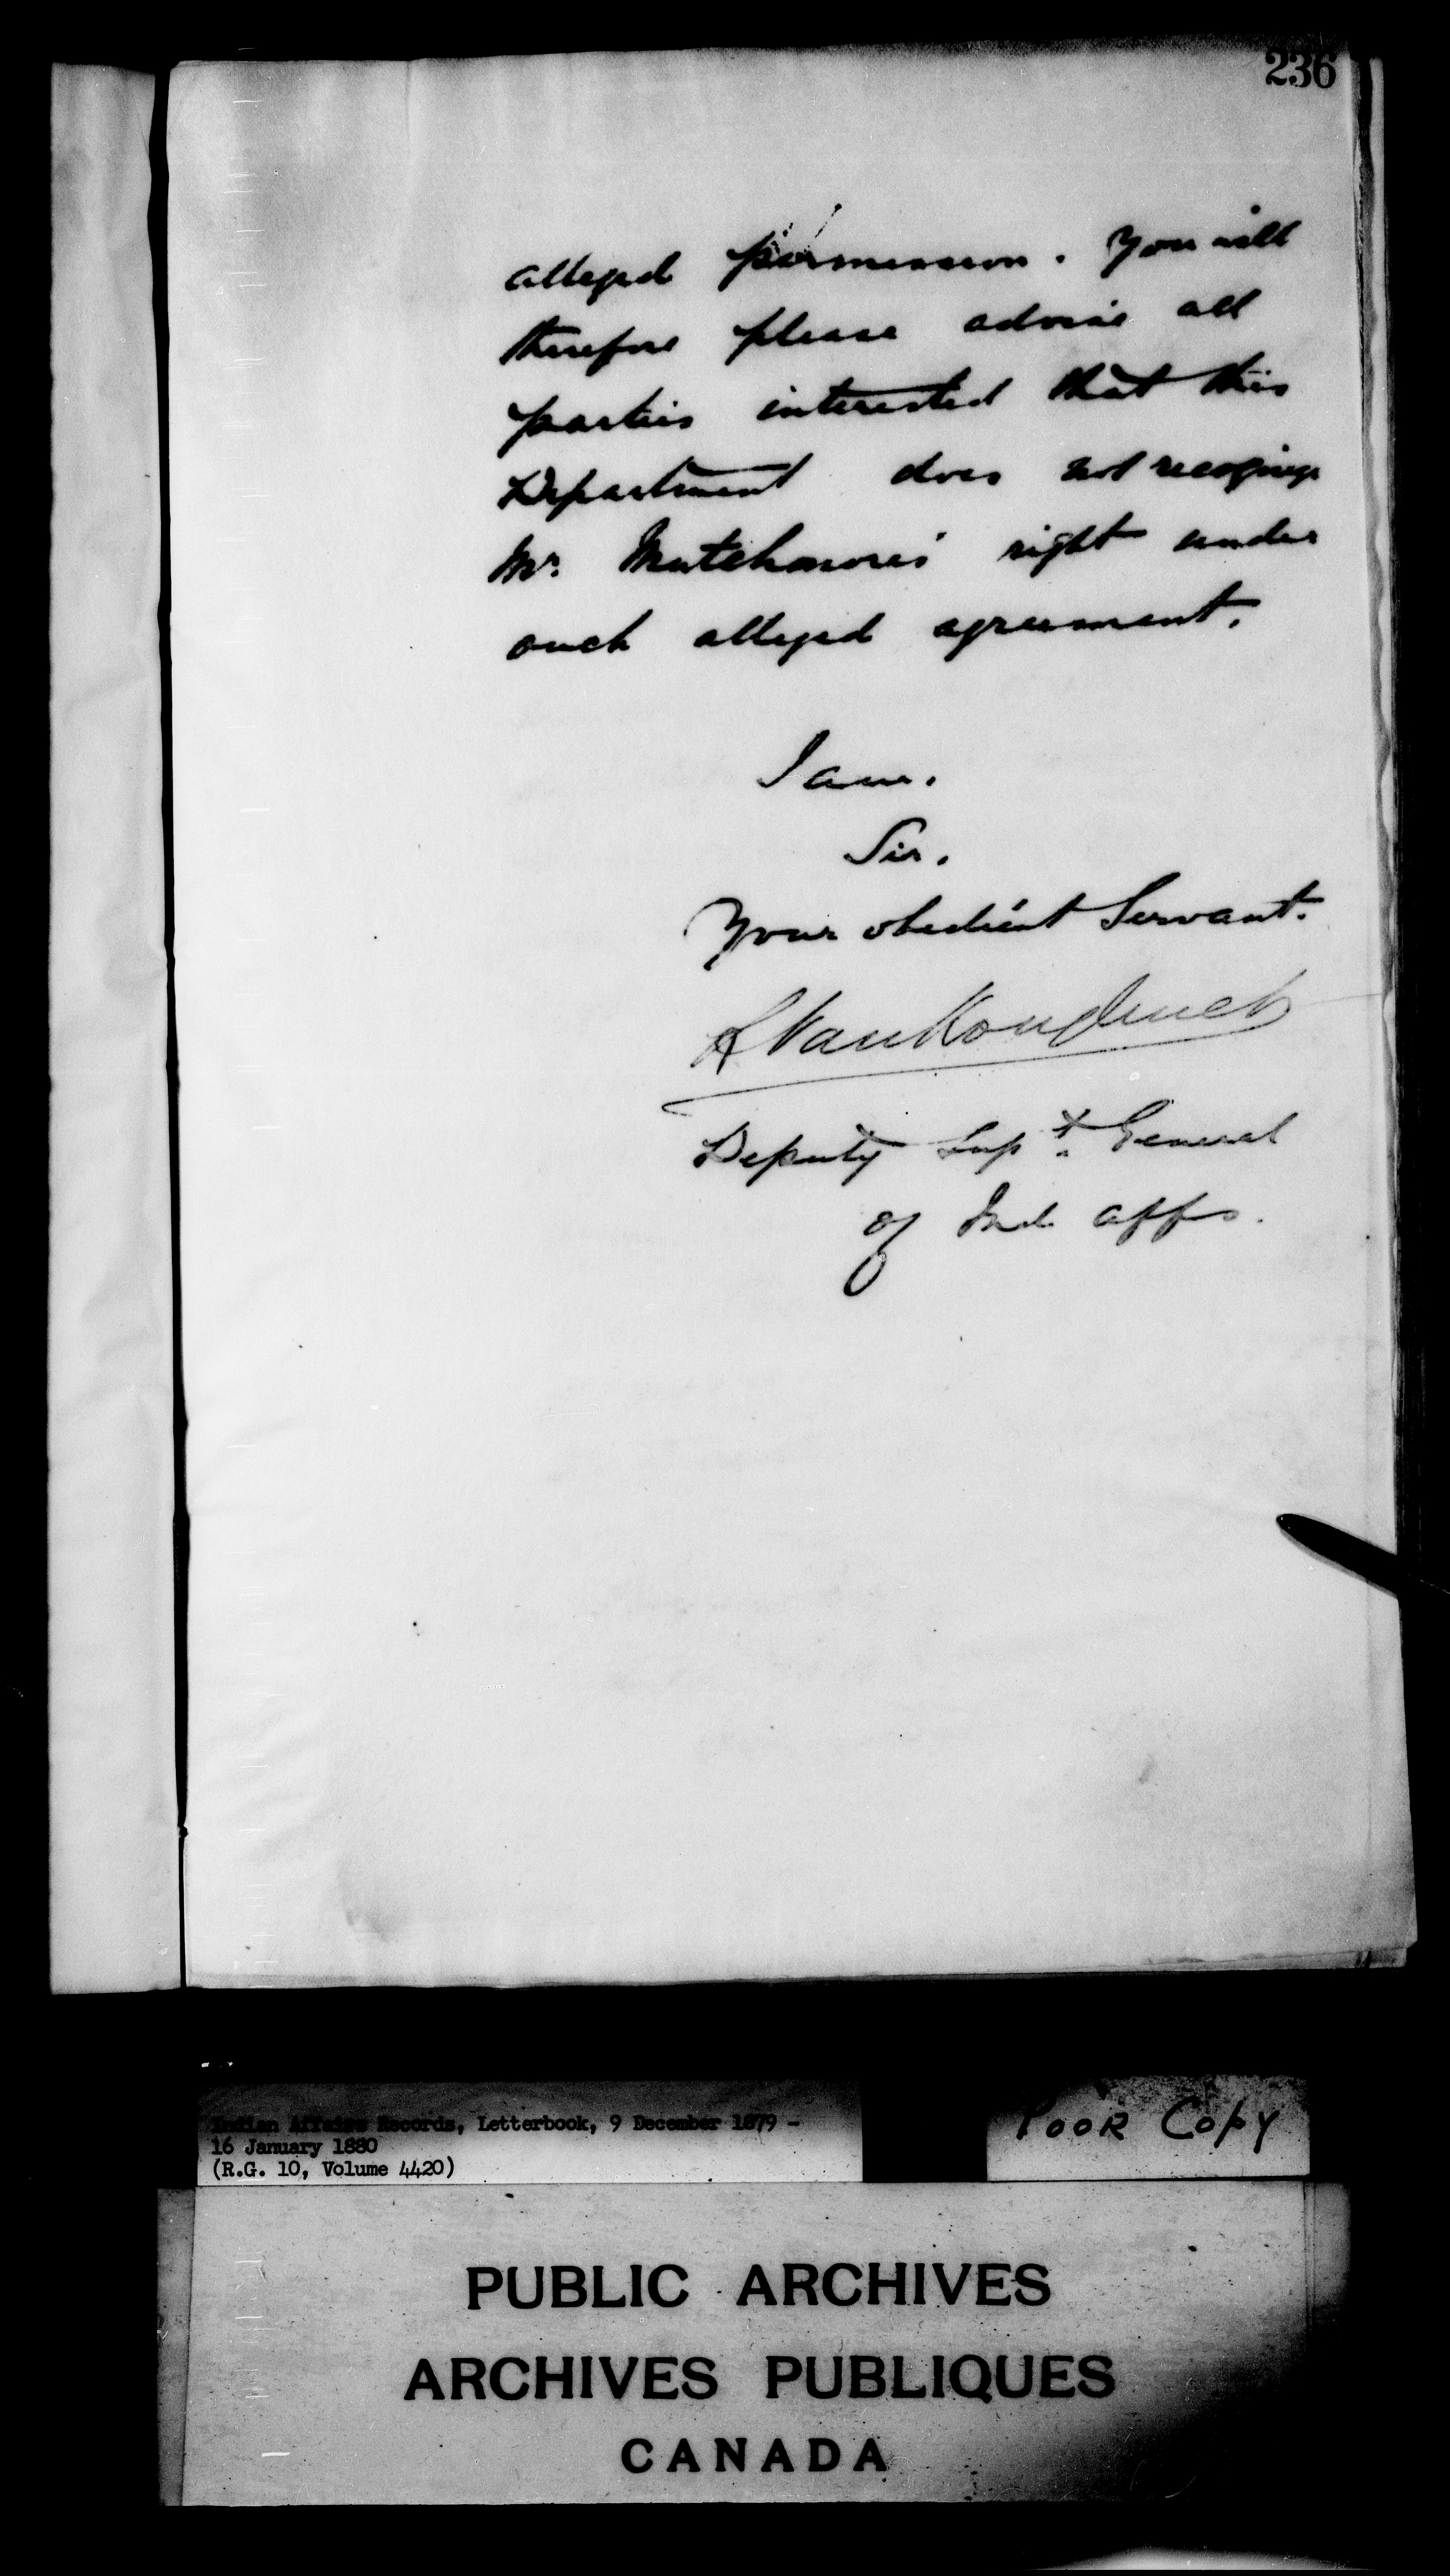 236
alleged permission. You will
therefore please advise all
parties interested that this
Department does not recognize
Mr. Mutchmore's right under
such alleged agreement.
I am.
Sir.
Your obedient Servant.
L VanKoughnet
Deputy Supt. General
of Ind Affs.
Indian Affairs Records, Letterbook, 9 December 1879 -
16 January 1880
(R.G. 10, Volume 4420)
POOR COPY
PUBLIC ARCHIVES
ARCHIVES PUBLIQUES
CANADA